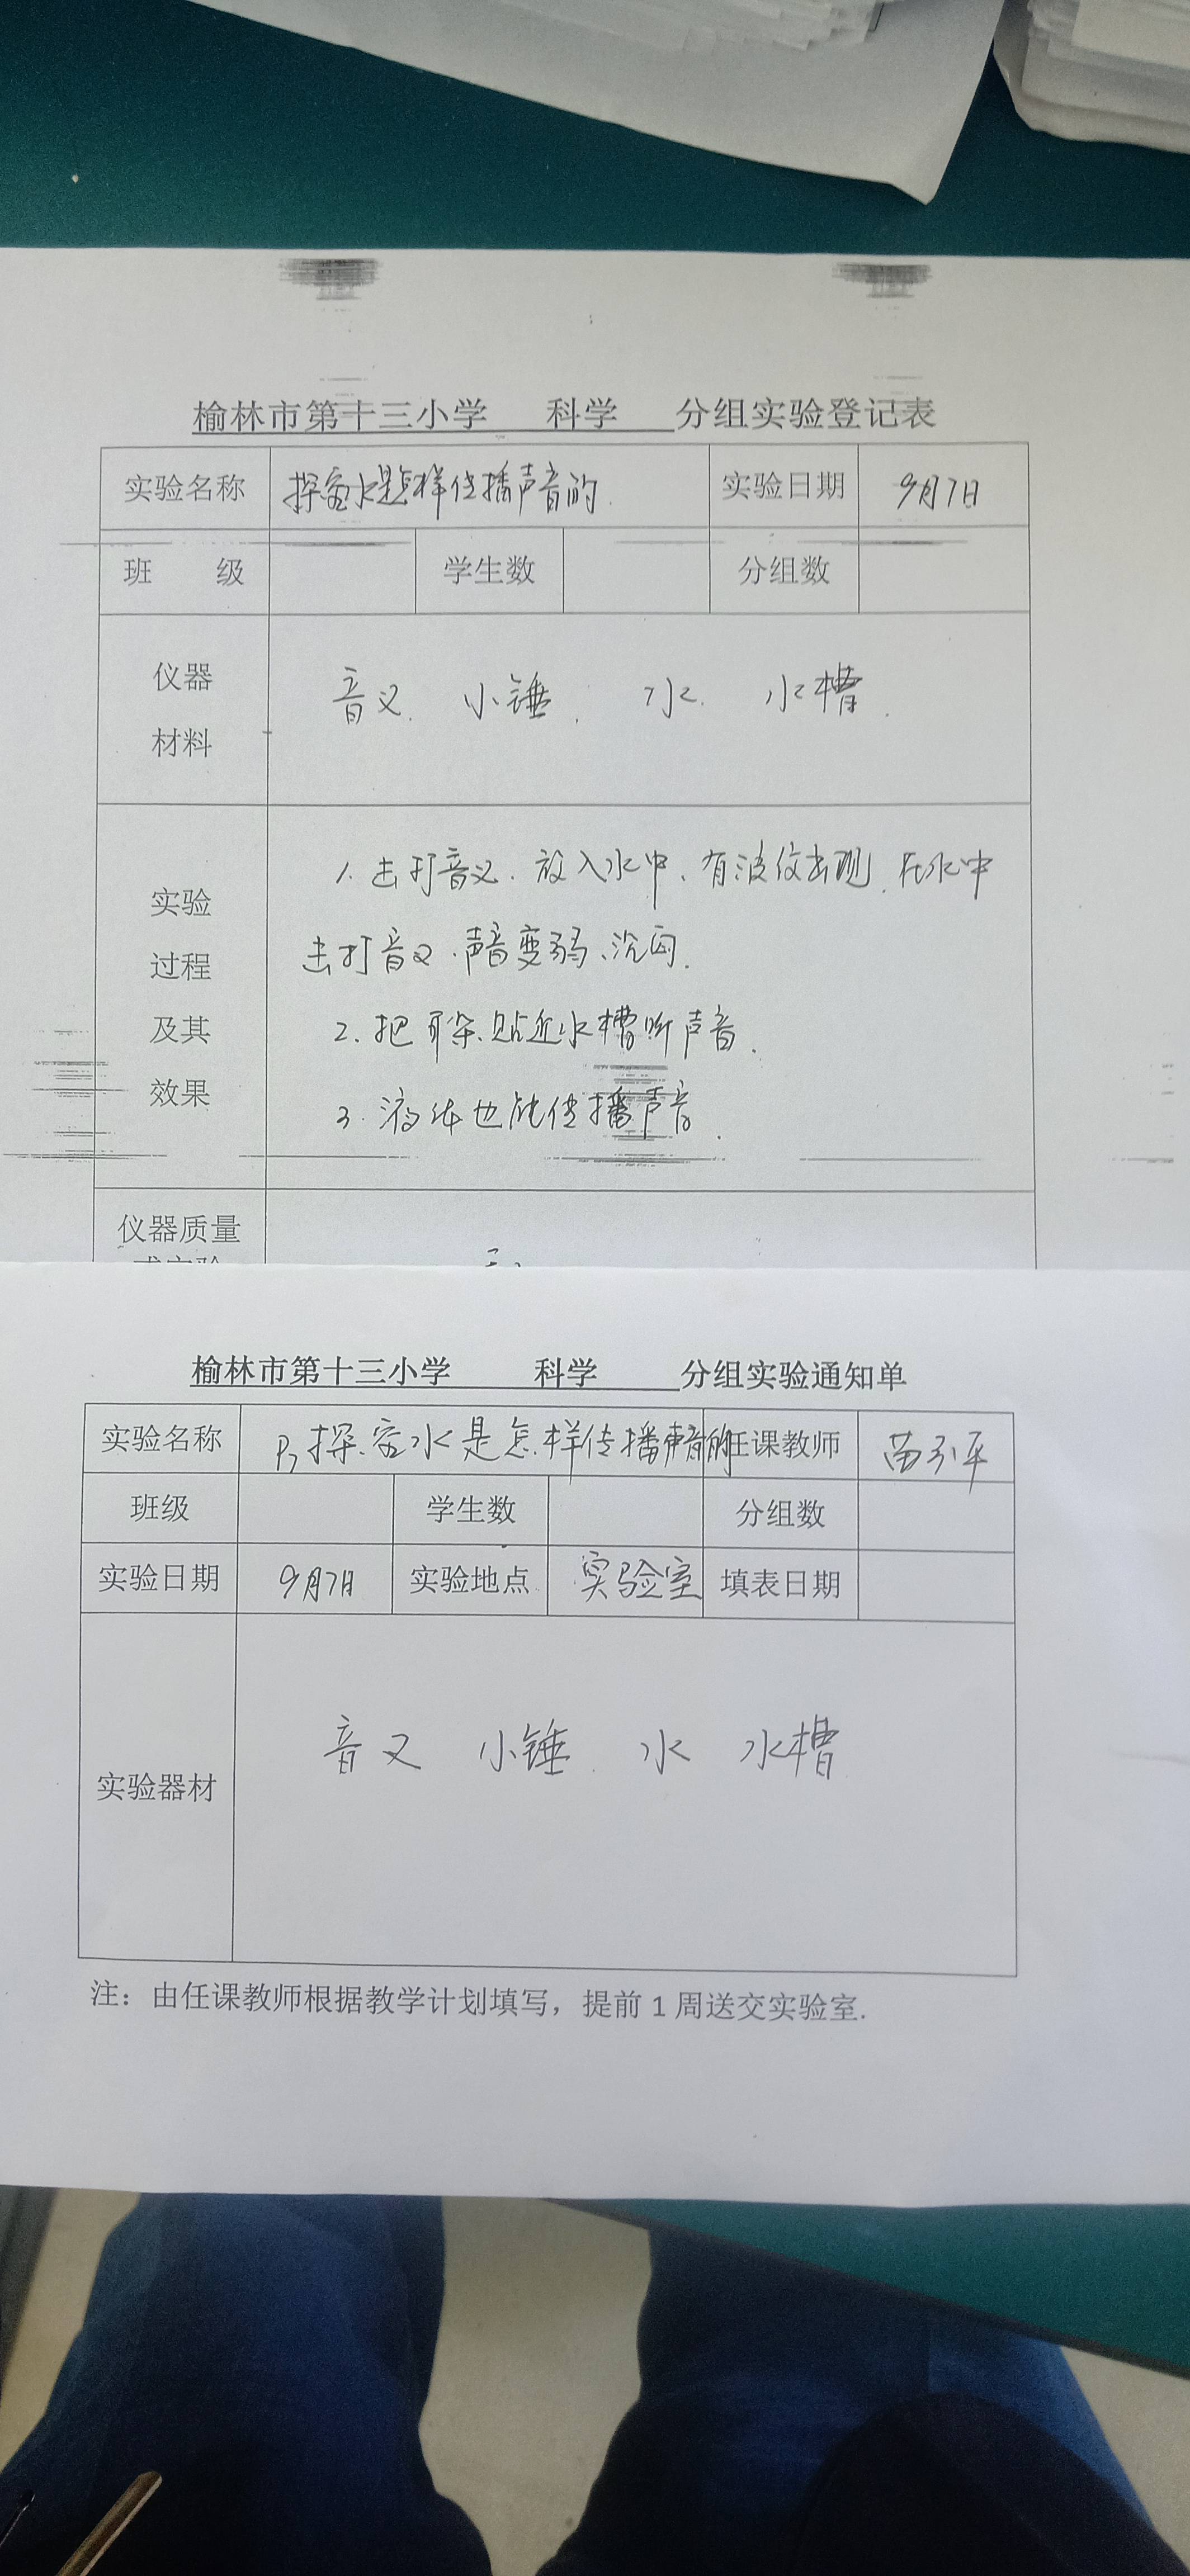 榆林市第十三小学 科学 分组实验登记表
实验名称 探究水是怎样传播声音的. 实验日期 9月7日
班 级 学生数 分组数
仪器
材料
音叉. 小锤. 水. 水槽.
实验
过程
及其
效果
1. 击打音叉. 放入水中、有波纹出现. 在水中
击打音叉.声音变弱、沉闷.
2. 把耳朵贴近水槽听声音.
3. 液体也能传播声音.
仪器质量
榆林市第十三小学 科学 分组实验通知单
实验名称 探究水是怎样传播声音的 任课教师
班级 学生数 分组数
实验日期 9月7日 实验地点 实验室 填表日期
实验器材
音叉 小锤. 水 水槽
注：由任课教师根据教学计划填写，提前1周送交实验室.